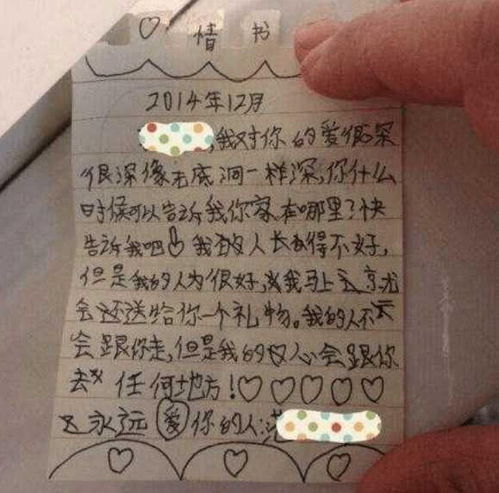 ♡ 情书
2014年12月
,我对你的爱很深
很深像无底洞一样深,你什么
时候可以告诉我你家在哪里?快
告诉我吧 我人长得不好,
但是我的人为很好,我马上
会还送给你一个礼物。我的人不
会跟你走,但是我的心会跟你
去任何地方!♡♡♡♡♡
永远爱你的人:范